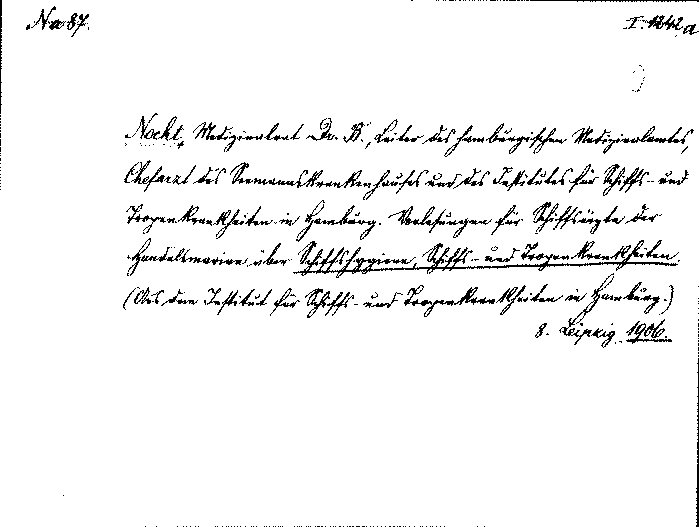 Na 87.
I. 1242a
Nocht, Medizinalrat Dr. B., Leiter des hamburgischen Medizinalamtes,
Chefarzt des Seemannskrankenhauses und des Institutes für Schiffs- und
Tropenkrankheiten in Hamburg. Vorlesungen für Schiffsärzte der
Handelsmarine über Schiffshygiene, Schiffs- und Tropenkrankheiten.
(Aus dem Institut für Schiffs- und Tropenkrankheiten in Hamburg.)
8. Leipzig 1906.